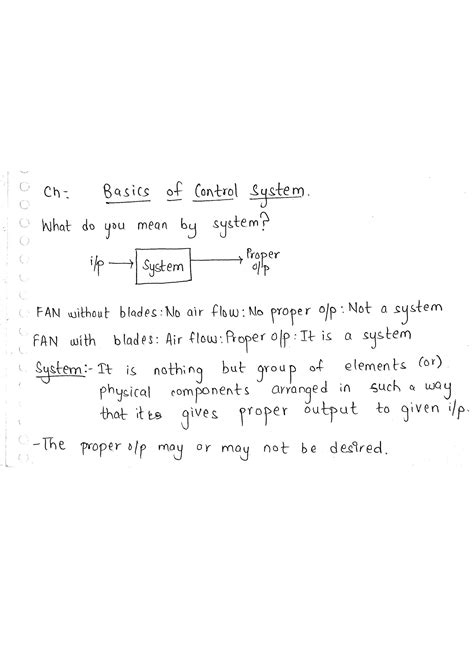 Ch:- Basics of Control System.
What do you mean by system?
i/p → System → Proper o/p
FAN without blades: No air flow: No proper o/p: Not a system
FAN with blades: Air flow: Proper o/p: It is a system
System:- It is nothing but group of elements (or)
physical components arranged in such a way
that it gives proper output to given i/p.
-The proper o/p may or may not be desired.